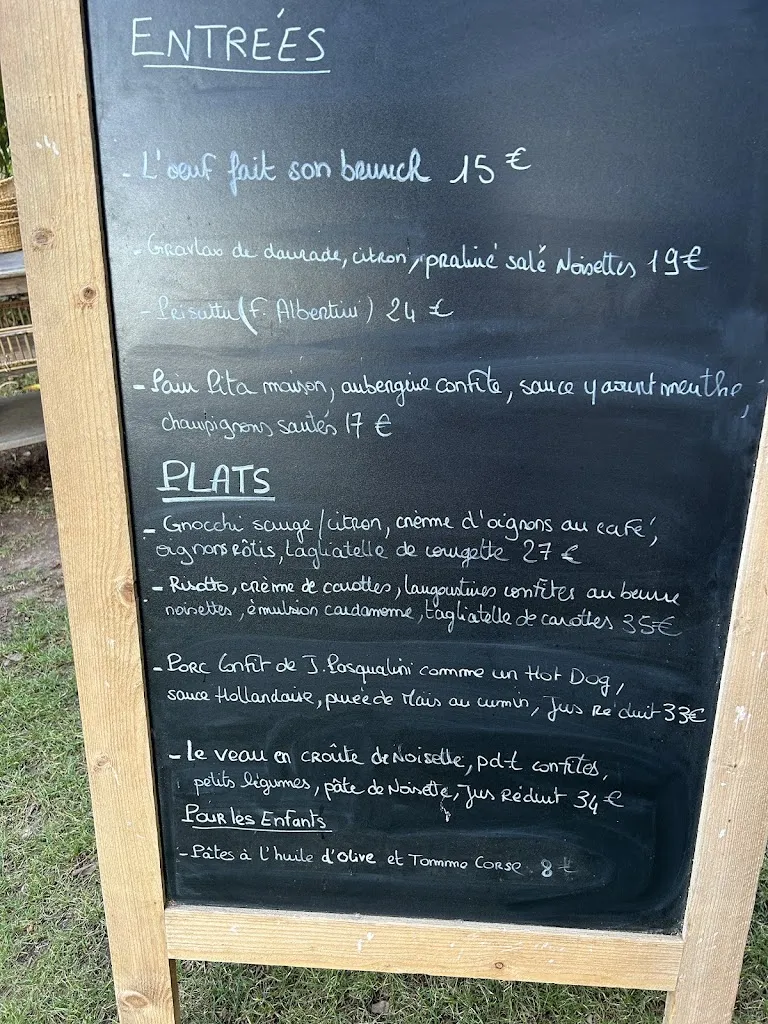 ENTRÉES
- L'oeuf fait son brunch 15 €
- Gravlax de daurade, citron, praliné salé Noisettes 19€
- Prisuttu (F. Albertini) 24 €
- Pain Pita maison, aubergine confite, sauce yaourt menthe,
champignons sautés 17 €
PLATS
- Gnocchi sauge/citron, crème d'oignons au café,
oignons rôtis, tagliatelle de courgette 27 €
- Risotto, crème de carottes, langoustines confites au beurre
noisettes, émulsion cardamome, tagliatelle de carottes 35€
- PORC Confit de J. Pasqualini comme un Hot Dog,
sauce Hollandaise, purée de Maïs au cumin, Jus Réduit 33€
- Le veau en CROÛTE de Noisette, pdt confites,
petits légumes, pâte de Noisette, Jus Réduit 34 €
Pour les Enfants
- Pâtes à l'huile d'olive et Tomme CORSE 8 €